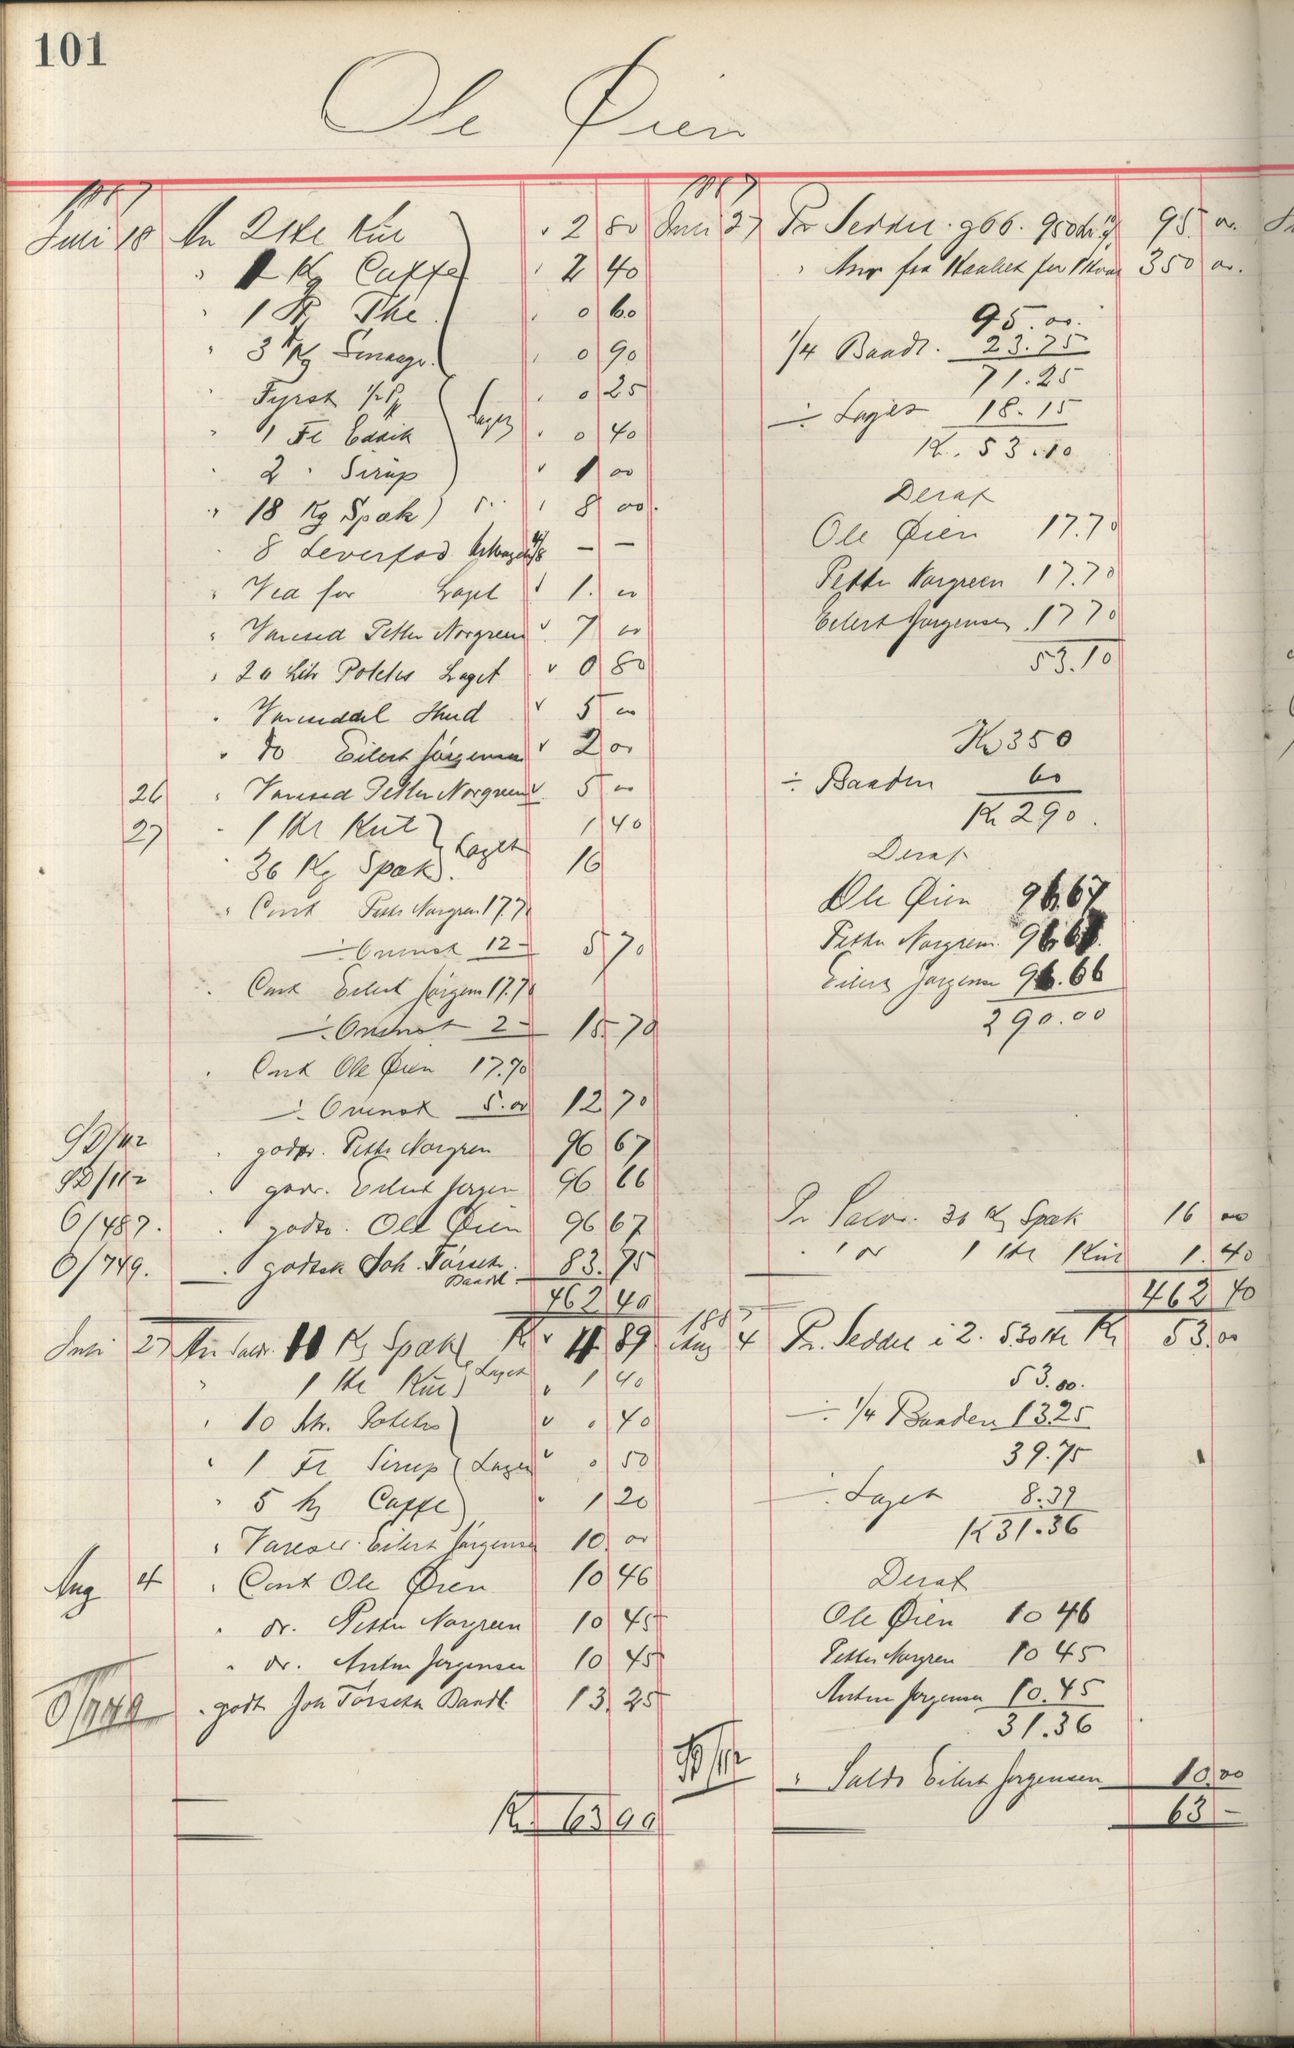 101
Ole Øien
1887
Juli 18 An 2 Stk Kul " 2 80
" 2 Kg Caffe " 2 40
" 1 ℔ The " 0 60
" 3 Kg " 0 90
" Fyrst 1/2 P " 0 25
" 1 Fl Eddik " 0 40
Laget
" 2 " Sirup " 1 00
" 18 Kg Spæk " 8 00
" 8 Leverfad — —
" Ved for Laget " 1. 00
" Varesed Petter Norgreen " 7 00
" 20 Litr Potetes Laget " 0 80
" Vareseddel " 5 00
" do Eilert Jørgensen " 2 00
26 " Varesed Petter Norgreen " 5 00
27 " 1 Stk Kul 1 40
Laget
" 36 Kg Spæk 16
" Cont Petter Norgren 17.70
÷ Ovenst 12 — 5 70
" Cont Eilert Jørgens 17.70
÷ Ovenst 2 — 15 70
" Cont Ole Øien 17.70
÷ Ovenst 5.00 12 70
SD/112 " godsk. Petter Norgren 96 67
SD/112 " godsk. Eilert Jørgen 96 66
O/487. " godsk. Ole Øien 96 67
O/749. " godsk Joh. Torseth. 83. 75
Baadl.
462 40
Juli 27 An Saldo 11 Kg Spæk Kr " 4 89
" 1 Stk Kul Laget " 1 40
" 10 Litr. Potetes " 0 40
" 1 Fl Sirup Laget " 0 50
" 5 Kg Caffe " 1 20
" Varesed. Eilert Jørgensen 10. 00
Aug 4 " Cont Ole Øien 10 46
" do. Petter Norgreen 10 45
" do. Anton Jørgensen 10 45
O/749 " godsk Joh Torseth Baadl. 13. 25
Kr. 63 00
1887
Juli 27 Pr Seddel 95 00
" for 350 00.
95.00.
1/4 Baadl. 23.75
71.25
÷ Laget 18.15
Kr. 53.10
Deraf
Ole Øien 17.70
Petter Norgreen 17.70
Eilert Jørgensen 17 70
53.10
Kr 350
÷ Baaden 60
Kr 290.
Deraf
Ole Øien 96.67
Petter Norgreen 96.67.
Eilert Jørgense 96.66
290.00
Pr Saldo. 36 Kg Spæk 16 00
" do 1 Stk Kul 1. 40
462 40
1887
Aug 4 Pr. Seddel i 2. 530 Stk Kr 53. 00
53.00.
÷ 1/4 Baaden 13.25
39.75
÷ Laget 8.39
Kr 31.36
Deraf
Ole Øien 10 46
Petter Norgren 10 45
Anton Jørgensen 10.45
31.36
SD/112 " Saldo Eilert Jørgensen 10.00
63 —